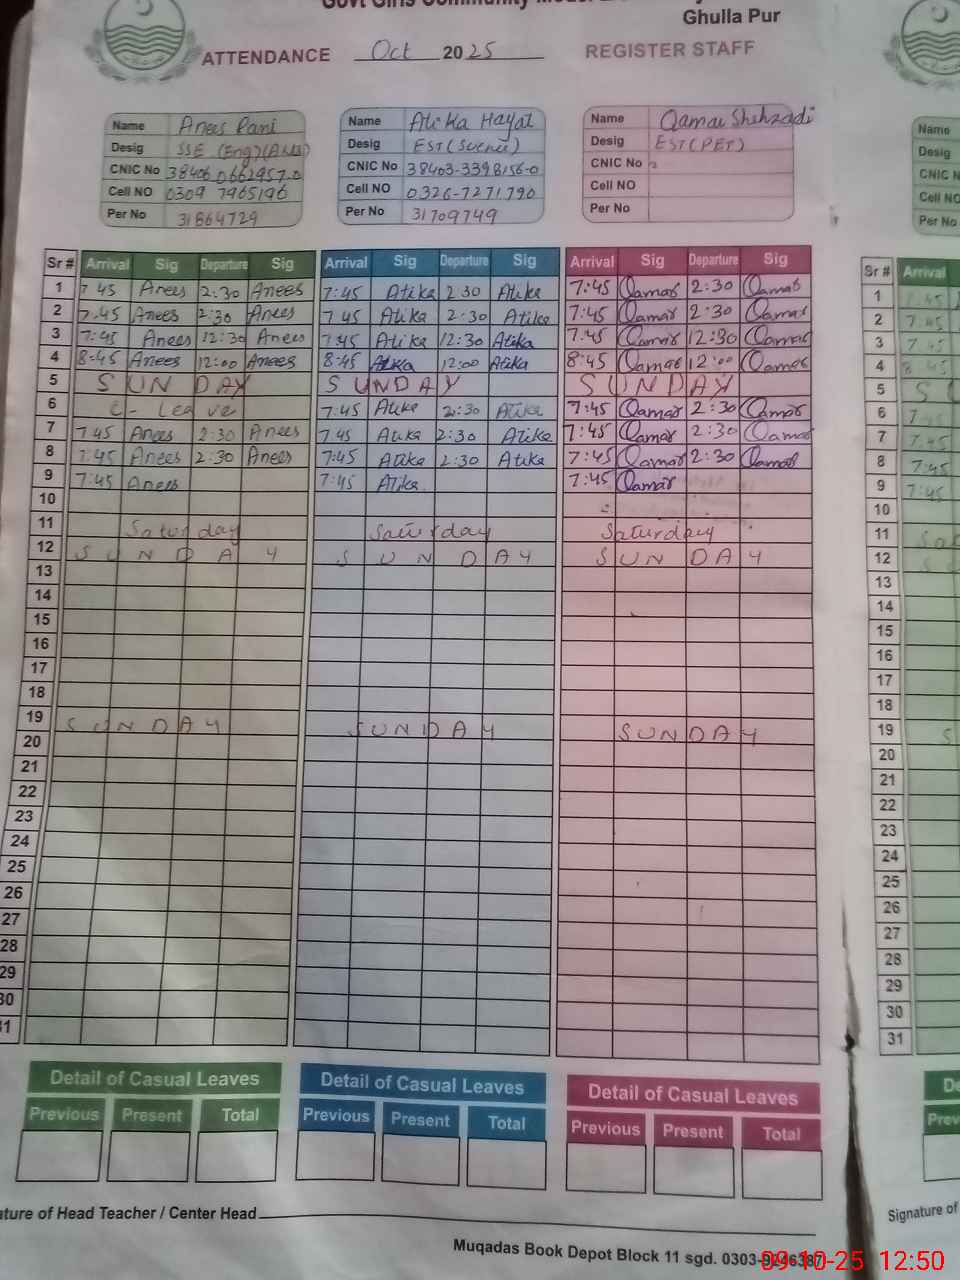 Govt Girls Community Model
Ghulla Pur
ATTENDANCE Oct 2025 REGISTER STAFF
Name Anees Rani
Desig SSE (Eng)
CNIC No 38406 0662957-0
Cell NO 0309 7965196
Per No 31864729
Name Atika Hayat
Desig EST
CNIC No 38403-3398156-0
Cell NO 0326-7271790
Per No 31709749
Name Qamar Shehzadi
Desig EST (PET)
CNIC No
Cell NO
Per No
Name
Desig
CNIC N
Cell NO
Per No
Sr # Arrival Sig Departure Sig Arrival Sig Departure Sig Arrival Sig Departure Sig Sr # Arrival
1 7 45 Anees 2:30 Anees 7:45 Atika 2 30 Atika 7:45 Qamar 2:30 Qamar 1 7:45
2 7.45 Anees 2:30 Anees 7 45 Atika 2:30 Atika 7:45 Qamar 2:30 Qamar 2 7:45
3 7:45 Anees 12:30 Anees 7:45 Atika 12:30 Atika 7.45 Qamar 12:30 Qamar 3 7 45
4 8:45 Anees 12:00 Anees 8:45 Atika 12:00 Atika 8:45 Qamar 12:00 Qamar 4 8 45
5 SUNDAY SUNDAY SUNDAY 5 S
6 C- Leave 7:45 Atika 2:30 Atika 7:45 Qamar 2:30 Qamar 6 7:45
7 7 45 Anees 2:30 Anees 7.45 Atika 2:30 Atika 7:45 Qamar 2:30 Qamar 7 7.45
8 7:45 Anees 2:30 Anees 7:45 Atika 2:30 Atika 7:45 Qamar 2:30 Qamar 8 7:45
9 7:45 Anees 7:45 Atika 7:45 Qamar 9 7:45
10 10
11 Saturday Saturday Saturday 11 Sa
12 SUNDAY SUNDAY SUNDAY 12 S
13 13
14 14
15 15
16 16
17 17
18 18
19 SUNDAY SUNDAY SUNDAY 19 S
20 20
21 21
22 22
23 23
24 24
25 25
26 26
27 27
28 28
29 29
30 30
31 31
Detail of Casual Leaves Detail of Casual Leaves Detail of Casual Leaves De
Previous Present Total Previous Present Total Previous Present Total Prev
ature of Head Teacher / Center Head Signature of
Muqadas Book Depot Block 11 sgd.
09-10-25 12:50